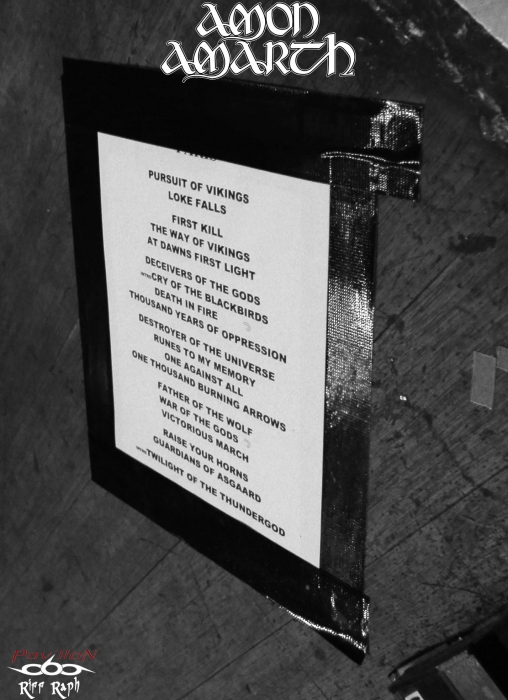 AMON
AMARTH
PURSUIT OF VIKINGS
LOKE FALLS
FIRST KILL
THE WAY OF VIKINGS
AT DAWNS FIRST LIGHT
DECEIVERS OF THE GODS
INTRO CRY OF THE BLACKBIRDS
DEATH IN FIRE
THOUSAND YEARS OF OPPRESSION
DESTROYER OF THE UNIVERSE
RUNES TO MY MEMORY
ONE AGAINST ALL
ONE THOUSAND BURNING ARROWS
FATHER OF THE WOLF
WAR OF THE GODS
VICTORIOUS MARCH
RAISE YOUR HORNS
GUARDIANS OF ASGAARD
INTRO TWILIGHT OF THE THUNDERGOD
Riff Raph